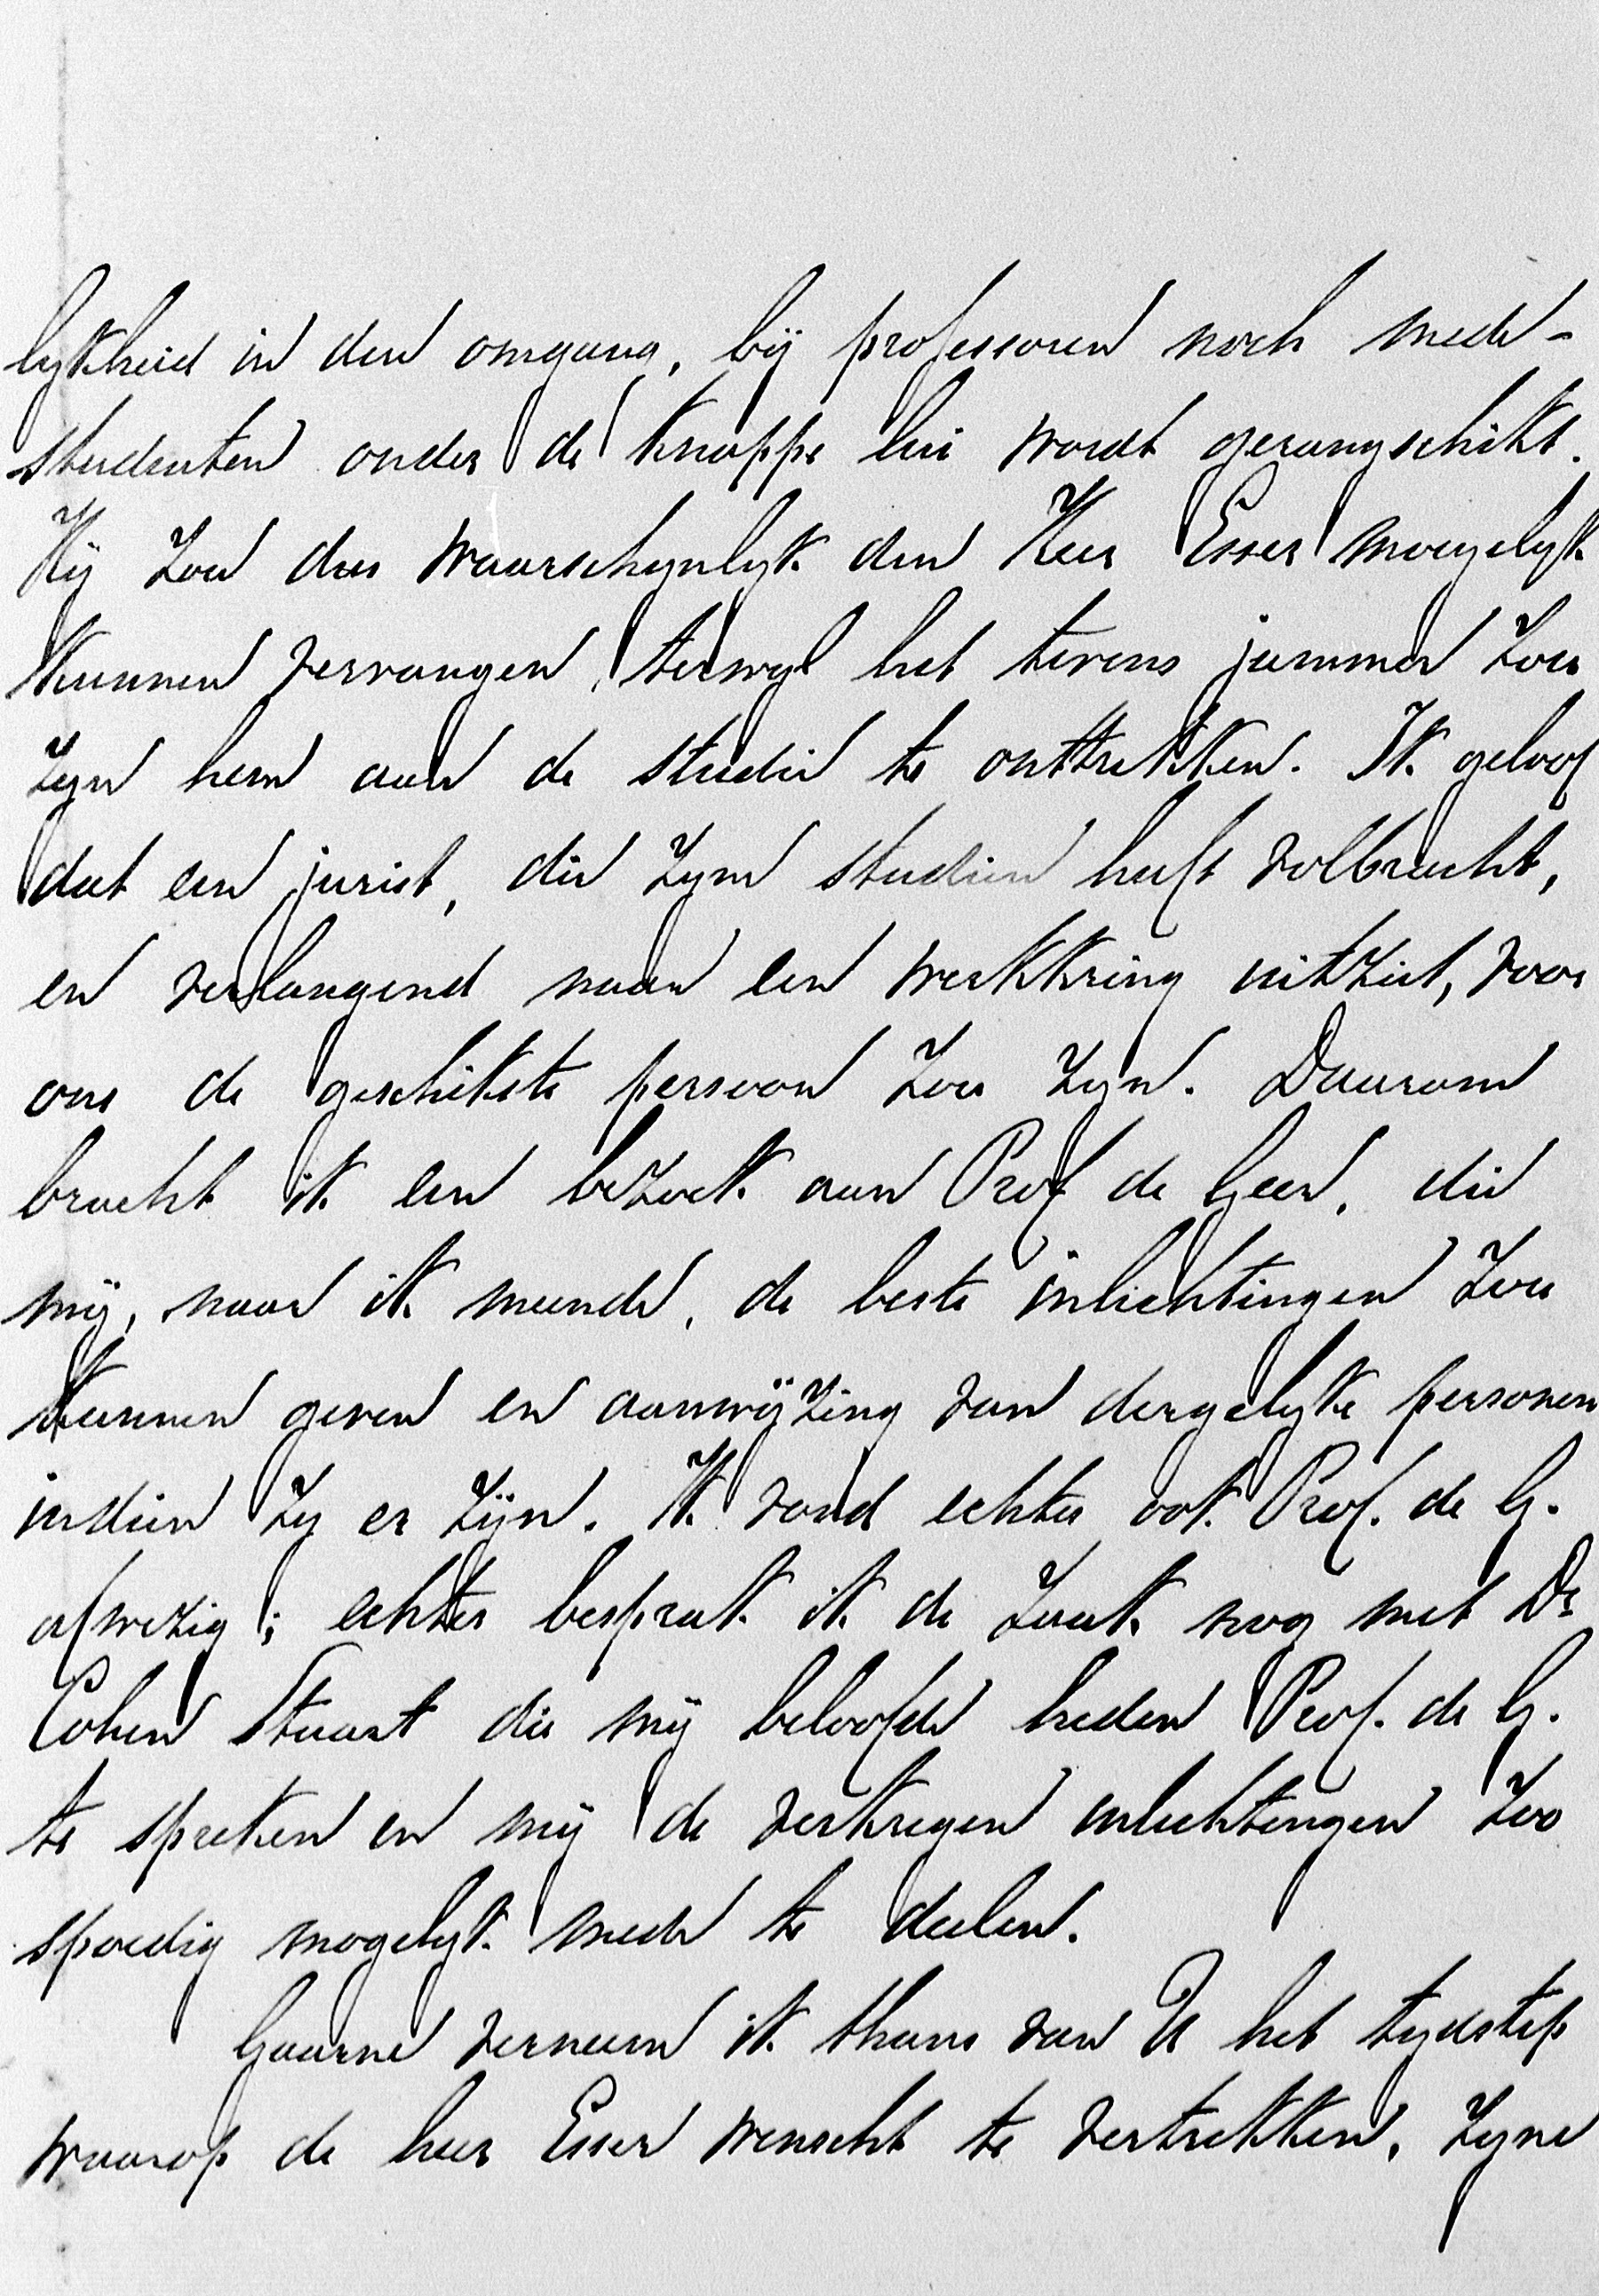 lykheid in den omgang, bij professoren noch mede-
studenten onder de knappe lui wordt gerangschikt.
Hij zou dus waarschynlyk den Heer Esser moeyelyk
kunnen vervangen, terwyl het tevens jammer zou
zyn hem aan de studie te onttrekken. Ik geloof
dat een jurist, die zyne studien heeft volbracht,
en verlangend naar een werkkring uitziet, voor
ons de geschikste persoon zou zyn. Daarom
bracht ik een bezoek aan Prof de Geer, die
mij, naar ik meende, de beste inlichtingen zou
kunnen geven en aanwijzing van dergelyke personen
indien zy er zijn. Ik vond echter ook Prof. de G.
afwezig; echter besprak ik de zaak nog met Dr
Cohen Stuart die mij beloofde heden Prof. de G.
te spreken en mij de verkregen inlichtingen zoo
spoedig mogelyk mede te deelen.
Gaarne verneem ik thans van U het tydstip
waarop de heer Esser wenscht te vertrekken, zyne